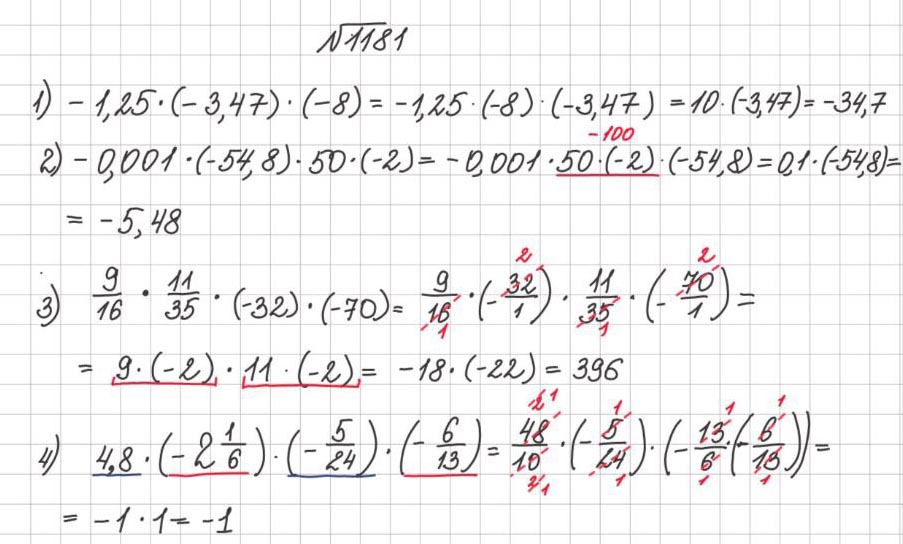 №1181
1) - 1,25 · (- 3,47) · (-8) = -1,25 · (-8) · (-3,47) = 10 · (-3,47) = -34,7
-100
2) - 0,001 · (-54,8) · 50 · (-2) = - 0,001 · 50 · (-2) · (-54,8) = 0,1 · (-54,8) =
= -5,48
3) 9/16 · 11/35 · (-32) · (-70) = 9/16 · (- 32/1) · 11/35 · (- 70/1) =
2 2
1 1
= 9 · (-2) · 11 · (-2) = -18 · (-22) = 396
4) 4,8 · (-2 1/6) · (- 5/24) · (- 6/13) = 48/10 · (- 5/24) · (- 13/6 · (- 6/13)) =
2 1 1 1 1
2 1 1 1 1
= -1 · 1 = -1